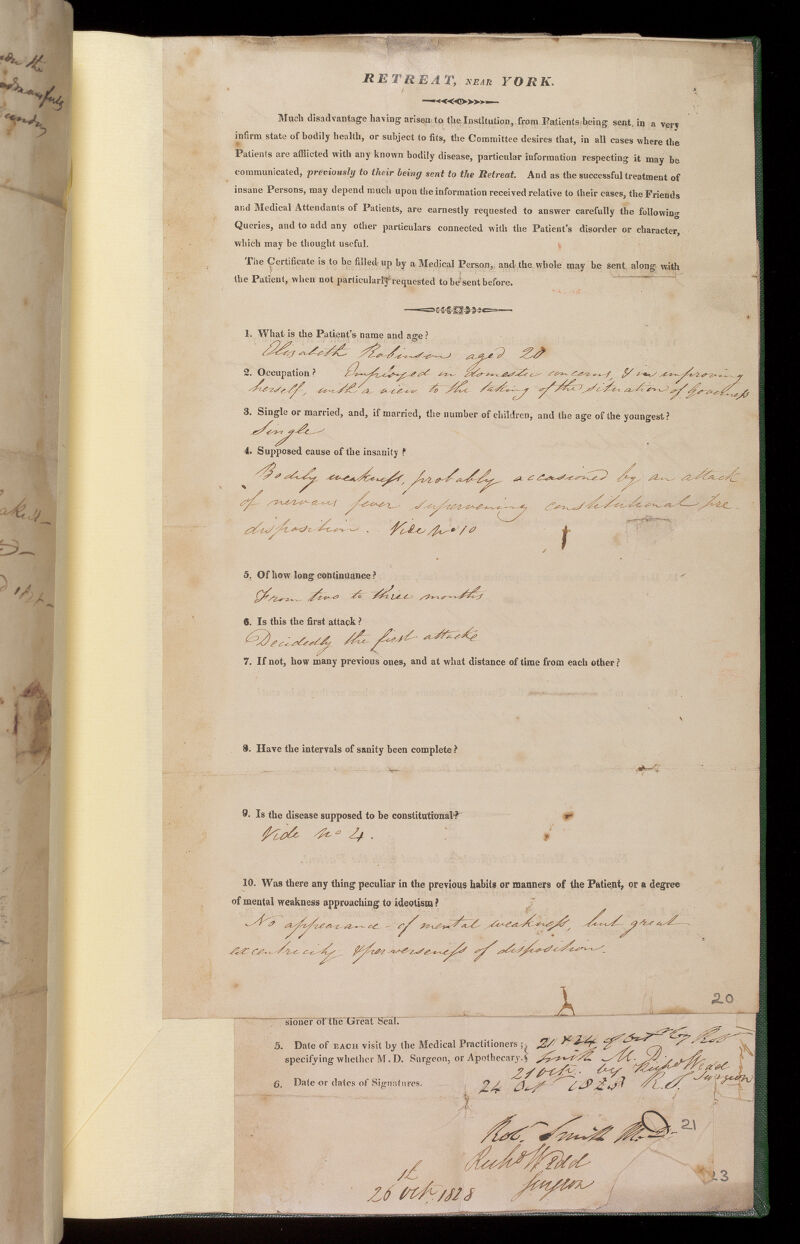 RETREAT, NEAR YORK.
Much disadvantage having arisen to the Institution, from Patients being sent in a very
infirm state of bodily health, or subject to fits, the Committee desires that, in all cases where the
Patients are afflicted with any known bodily disease, particular information respecting it may be
communicated, previously to their being sent to the Retreat. And as the successful treatment of
insane Persons, may depend much upon the information received relative to their cases, the Friends
and Medical Attendants of Patients, are earnestly requested to answer carefully the following
Queries, and to add any other particulars connected with the Patient's disorder or character,
which may be thought useful.
The Certificate is to be filled up by a Medical Person, and the whole may be sent along with
the Patient, when not particularly requested to be sent before.
1. What is the Patient's name and age?
Elizabeth Robinson aged 20
2. Occupation? Employed in domestic concerns, & in improving
herself, with a view to the taking of the situation of Governess
3. Single or married, and, if married, the number of children, and the age of the youngest?
Single
4. Supposed cause of the insanity?
Bodily weakness, probably occasioned by an attack
of nervous fever supervening constitutional pre-
disposition. Vide No 10
5. Of how long continuance?
From two to three months
6. Is this the first attack?
Decidedly the first attack
7. If not, how many previous ones, and at what distance of time from each other?
8. Have the intervals of sanity been complete?
9. Is the disease supposed to be constitutional?
Vide No 4.
10. Was there any thing peculiar in the previous habits or manners of the Patient, or a degree
of mental weakness approaching to ideotism?
No appearance of mental weakness, but great
excentricity & perverseness of disposition.
20
sioner of the Great Seal.
5. Date of EACH visit by the Medical Practitioners; 21 & 24 of Octr by Robt
specifying whether M.D. Surgeon, or Apothecary. Smith M.D.
21 Octr. by Richd Wedd
Surgeon
6. Date or dates of Signatures. 24 Oct 1828 R.S.
Robt. Smith M.D. 21
Richd Wedd
Surgeon
26th Octr 1828
23